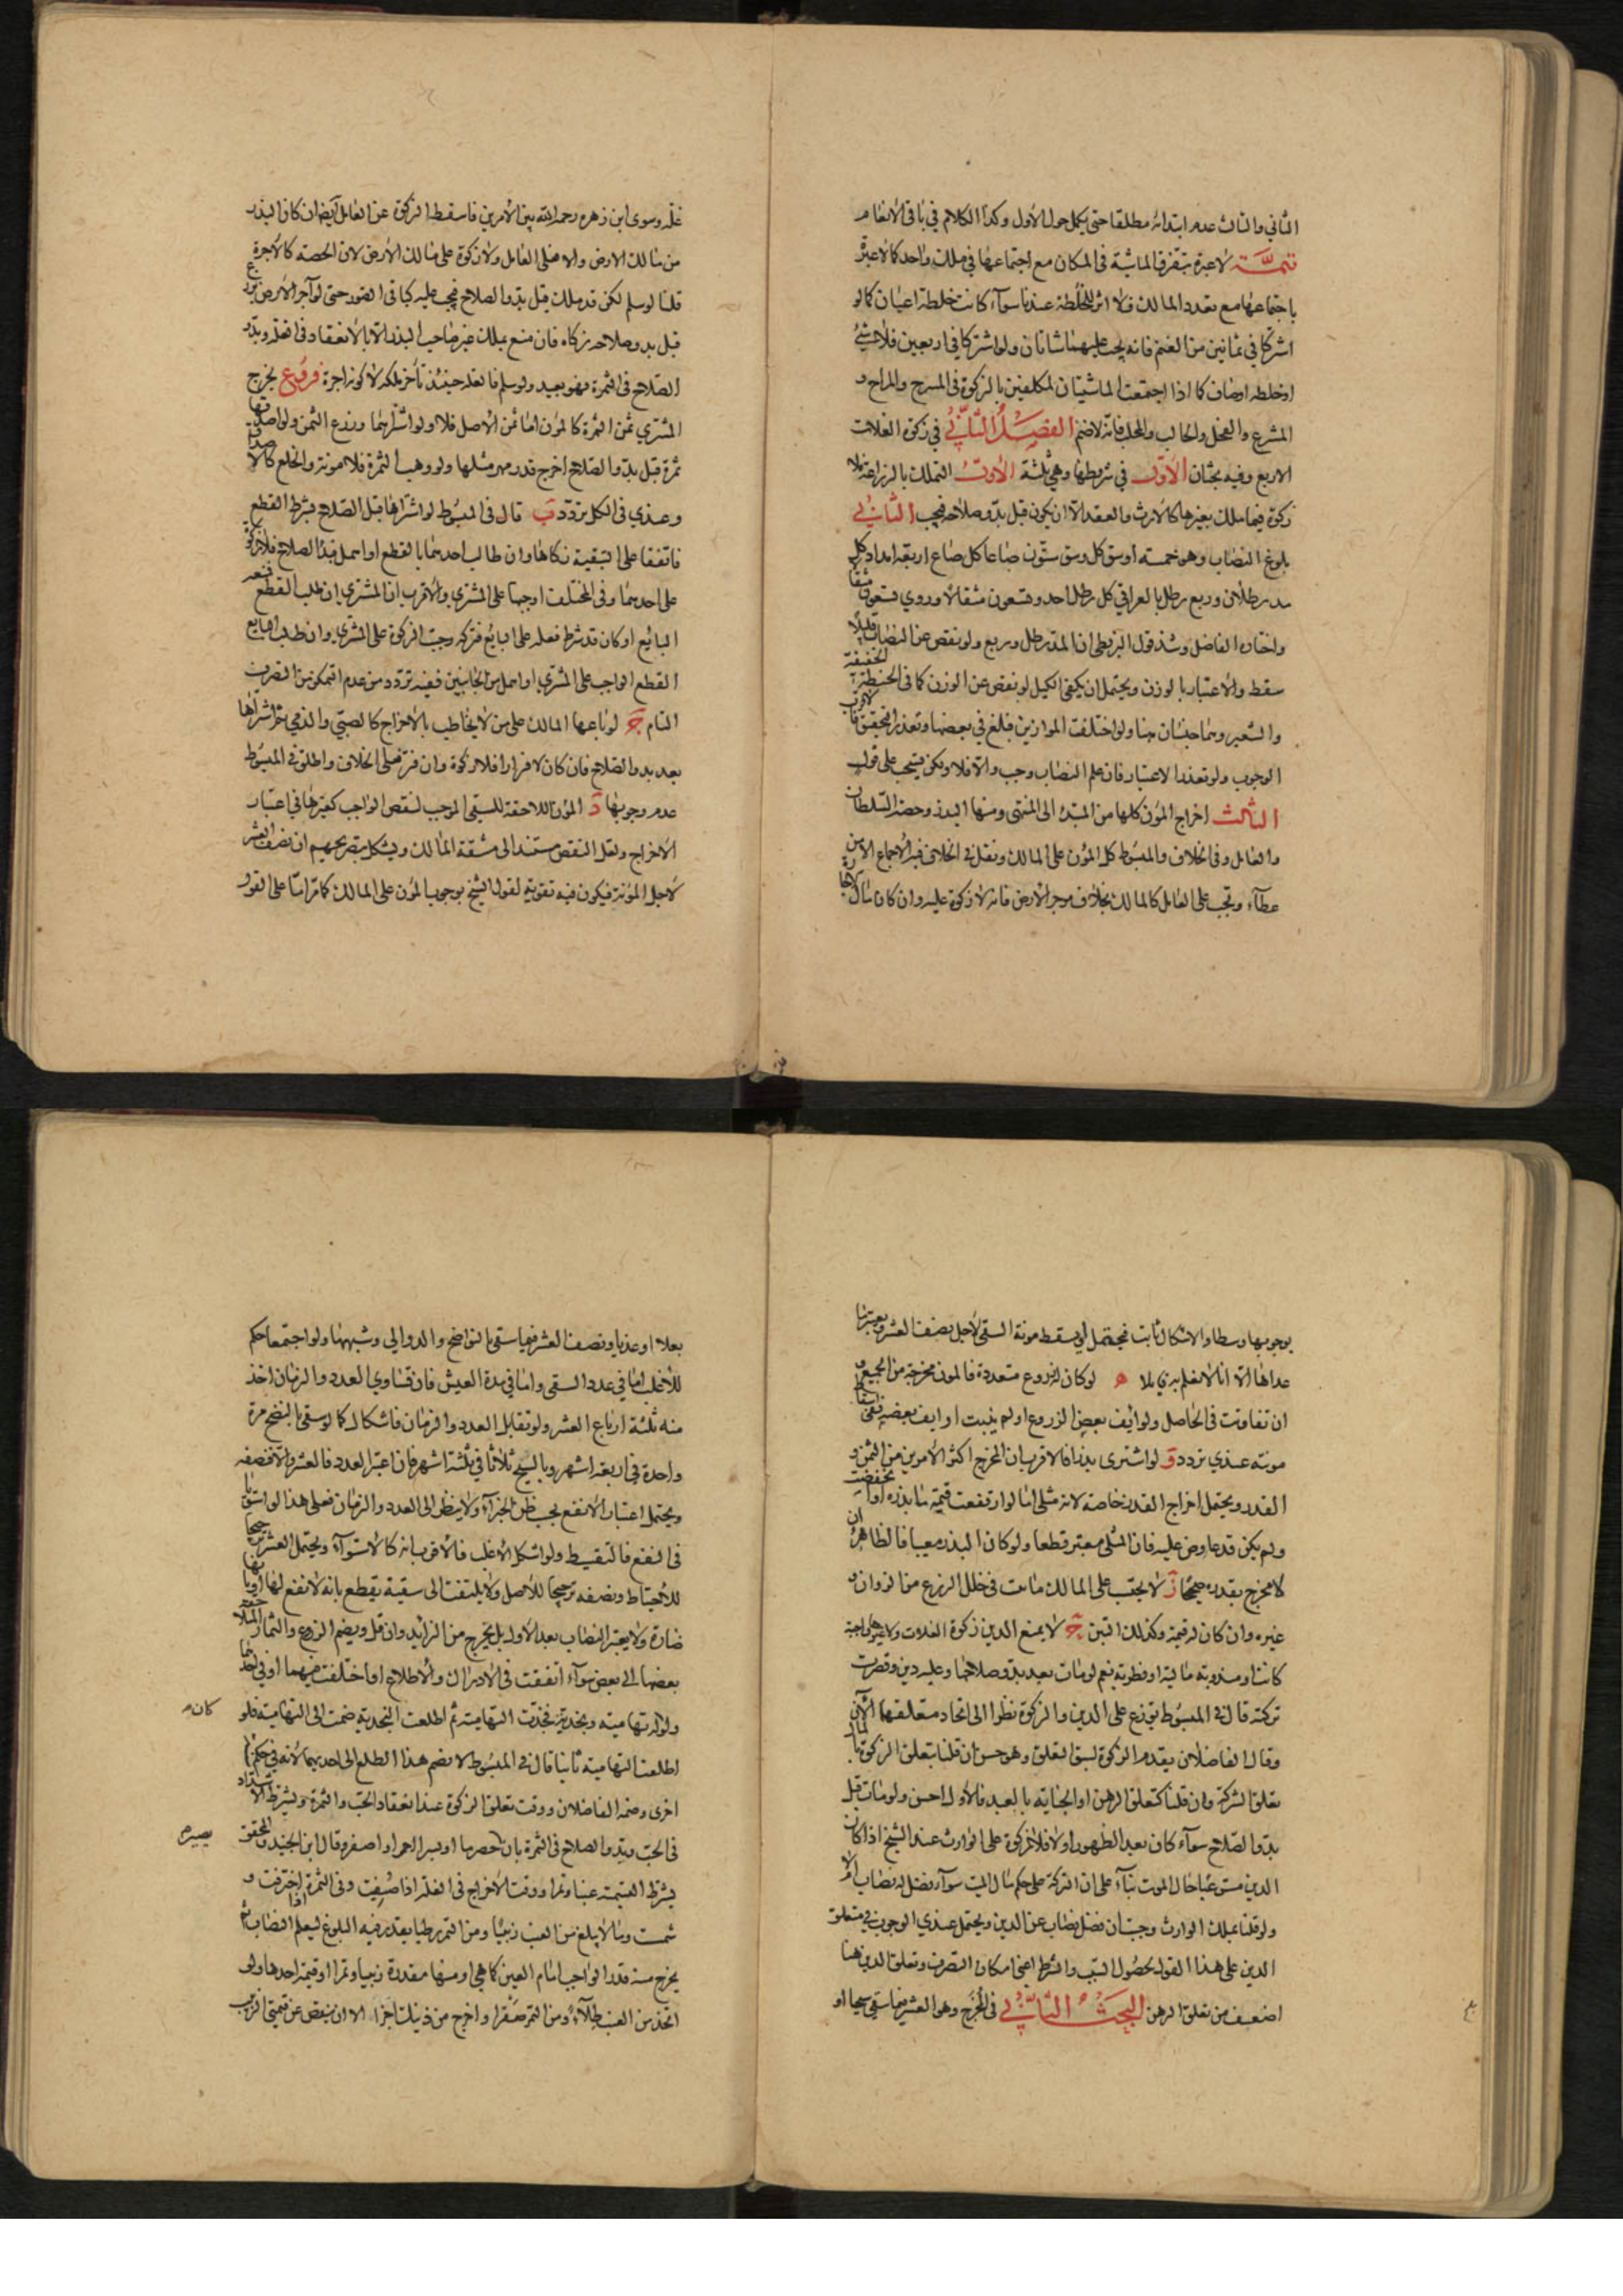 الثاني والثالث عدم ابتدائه مطلقا حتى يكمل حول الأول وكذا الكلام في باقي الانعام
تتمة لاعبرة بتفرق الماشية في المكان مع اجتماعها في ملك واحد كالاعبرة
باجتماعها مع تعدد المالك فلا اثر للخلطة عندنا سوآء كانت خلطة اعيان كمالو
اشتركا في ثمانين من الغنم فانه يجب عليهما شاتان ولو اشتركا في اربعين فلا شئ
او خلطه اوصاف كما اذا اجتمعت الماشيتان لمكلفين بالزكوة في المسرح والمراح و
المشرع والفحل والحالب والمحلب فانه لا ضم الفصل الثاني في زكوة الغلات
الاربع وفيه بحثان الأول في شروطها وهي ثلثة الأول التملك بالزراعة فلا
زكوة فيما يملك بغيرها كالارث والعقد الا ان يكون قبل بدو صلاحه فيجب الثاني
بلوغ النصاب وهو خمسة اوسق كل وسق ستون صاعا كل صاع اربعة امداد كل
مد رطلان وربع رطل بالعراقي كل رطل احد وتسعون مثقالا وروي تسعون مثقا
واختاره الفاضل وشذ قول البزنطي ان المد رطل وربع ولو نقص عن النصاب قليلا
سقط والاعتبار بالوزن ويحتمل ان يكفى الكيل لو نقص عن الوزن كما في الحنطة الخفيفة
والشعير وهما جنسان هنا ولو اختلفت الموازين فبلغ في بعضها وتعذر التحقيق فالاقرب
الوجوب ولو تعذر الاعتبار فان علم النصاب وجب والا فلا ولكن يستحب على قول
الثالث اخراج المؤن كلها من المبتدء الى المنتهى ومنها البذر وحصة السلطان
والعامل وفي الخلاف والمبسوط كل المؤن على المالك ونقل في الخلاف فيه الاجماع الا من
عطآء وتجب على العامل كالمالك بخلاف موجر الأرض فانه لا زكوة عليه وان كان مال الاجارة
غلة وسوى ابن زهره رحمه الله بين الأمرين فاسقط الزكوة عن العامل أيضا ان كان البذر
من مالك الارض والا فعلى العامل ولا زكوة على مالك الأرض لان الحصة كالأجرة
قلنا لو سلم لكن قد ملك قبل بدو الصلاح فيجب عليه كباقي العقود حتى لو آجر الأرض بزرع
قبل بدو صلاحه زكاه فان منع بملك غير صاحب البذر الا بالانعقاد في الغلة وبدو
الصلاح في الثمرة فهو بعيد ولو سلم فانعقد حينئذ تأخر ملكه لا كونه اجرة فروع يخرج
المشتري ثمن الثمرة كالمؤن اما ثمن الأصل فلا ولو اشتراهما وزع الثمن ولو اصدقها
ثمرة قبل بدو الصلاح اخرج قدر مهر مثلها ولو وهب الثمرة فلا مؤنة والخلع كالاصداق
وعندي في الكل تردد ب قال في المبسوط لو اشتراها قبل الصلاح بشرط القطع
فاتفقا على التبقية زكاها وان طالب احدهما بالقطع او اهمل فبدا الصلاح فلا زكوة
على احدهما وفي المختلف اوجبها على المشتري والأقرب ان المشتري ان طلب القطع فمنعه
البائع او كان قد شرط فعله على البائع فتركه وجبت الزكوة على المشتري وان طلب البايع
القطع الواجب على المشتري او اهمل من الجانبين ففيه تردد من عدم التمكن من التصرف
التام ج لو باعها المالك على من لا يخاطب بالاخراج كالصبي والذمي ثم اشتراها
بعد بدو الصلاح فان كان لا فرارا فلا زكوة وان فر فعلى الخلاف واطلق في المبسوط
عدم وجوبها د المؤن اللاحقة للسقي الموجب لنقص الواجب كغيرها في اعتبار
الاخراج ولعل النقص مستند الى مشقة المالك ويشكل بتصريحهم ان نصف العشر
لاجل المؤنة فيكون فيه تقوية لقول الشيخ بوجوب المؤن على المالك كما مر اما على القول
بوجوبها وسطا والاشكال ثابت فيحتمل ان يسقط مونة السقي لأجل نصف العشر ويعتبر ما
عداها الا انا لا نعلم به قائلا ه لو كان له زروع متعددة فالمون مخرجة من الجميع و
ان تفاوتت في الحاصل ولو ائيف بعض الزروع او لم ينبت او ايف بعضه ففي اسقاط
مونته عندي تردد و لو اشترى بذرا فالاقرب ان المخرج اكثر الأمرين من الثمن و
القدر ويحتمل اخراج القدر خاصة لانه مثلي اما لو ارتفعت قيمة ما بذره او انخفضت
ولم يكن قد عاوض عليه فان المثل معتبر قطعا ولو كان البذر معيبا فالظاهر ان
لا مخرج بقدره صحيحا ز لا يجب على المالك ما نبت في خلل الزرع من الزوان و
غيره وان كان له قيمة وكذلك التبن ح لا يمنع الدين زكوة الغلات ولا غيرها واجبة
كانت او مندوبة مالية او فطرية نعم لو مات بعد بدو صلاحها وعليه دين وقصرت
تركته قال في المبسوط توزع على الدين والزكوة نظرا الى اتحاد متعلقهما الآن
وقال الفاضلان يقدم الزكوة لسبق التعلق وهو حسن ان قلنا بتعلق الزكوة بالمال
تعلق الشركة وان قلنا كتعلق الرهن او الجناية بالعبد فالأول احسن ولو مات قبل
بدو الصلاح سوآء كان بعد الظهور او لا فلا زكوة على الوارث عند الشيخ اذا كان
الدين مستوعبا حال الموت بنآء على ان التركة على حكم مال الميت سوآء فضل له نصاب ام لا
ولو قلنا بملك الوارث وجبت ان فضل نصاب عن الدين ويحتمل عندي الوجوب في متعلق
الدين على هذا القول لحصول السبب والشرط اعني امكان التصرف وتعلق الدين هنا
اضعف من تعلق الرهن البحث الثاني في المخرج وهو العشر فيما سقي سيحا او
بعلا او عذيا ونصف العشر فيما سقي بالنواضح والدوالي وشبهها ولو اجتمعا حكم
للأغلب اما في عدد السقي واما في مدة العيش فان تساوي العدد والزمان اخذ
منه ثلثة ارباع العشر ولو تقابل العدد والزمان فاشكال كما لو سقى بالنضح مرة
واحدة في اربعة اشهر وبالسيح ثلاثا في ثلثة اشهر فان اعتبر العدد فالعشر والا فنصفه
ويحتمل اعتبار الانفع بحسب ظن الخبرآء ولا ينظر الى العدد والزمان فعلى هذا لو استويا
في النفع فالتقسيط ولو اشكل الاغلب فالأقرب انه كالاستوآء ويحتمل العشر ترجيحا
للاحتياط ونصفه ترجيحا للأصل ولا يلتفت الى سقية يقطع بانه لا نفع لها او بانها
ضارة ولا يعتبر النصاب بعد الأول بل يخرج من الزائد وان قل ويضم الزروع والثمار
بعضها الى بعض سوآء اتفقت في الادراك والأطلاع او اختلفت فيهما او في احدهما
ولو له تهامية ونجدية فجذت التهامية ثم اطلعت النجدية ضمت الى التهامية فلو كان
اطلعت التهامية ثانيا قال في المبسوط لا يضم هذا الطلع الى احديهما لأنه في حكم
اخرى وضمه الفاضلان ووقت تعلق الزكوة عند انعقاد الحب والثمرة ويشترط الاشتداد
في الحب وبدو الصلاح في الثمرة بان حصرما او بسر احمر او اصفر وقال ابن الجنيد والمحقق يصير
يشترط التسمية عنبا وتمرا ووقت الاخراج في الغلة اذا صفيت وفي الثمرة اذا اخترفت و
شمست وما لا يبلغ من العنب زبيبا ومن التمر رطبا يقدر فيه البلوغ ليعلم النصاب ثم
يخرج منه قدر الواجب اما من العين كما هي او منها مقدرة زبيبا وتمرا او قيمة احدها ولو
اتخذ من العنب طلآء ومن التمر صقرا واخرج من ذينك اجزأ الا ان ينقص عن قيمتي الزبيب